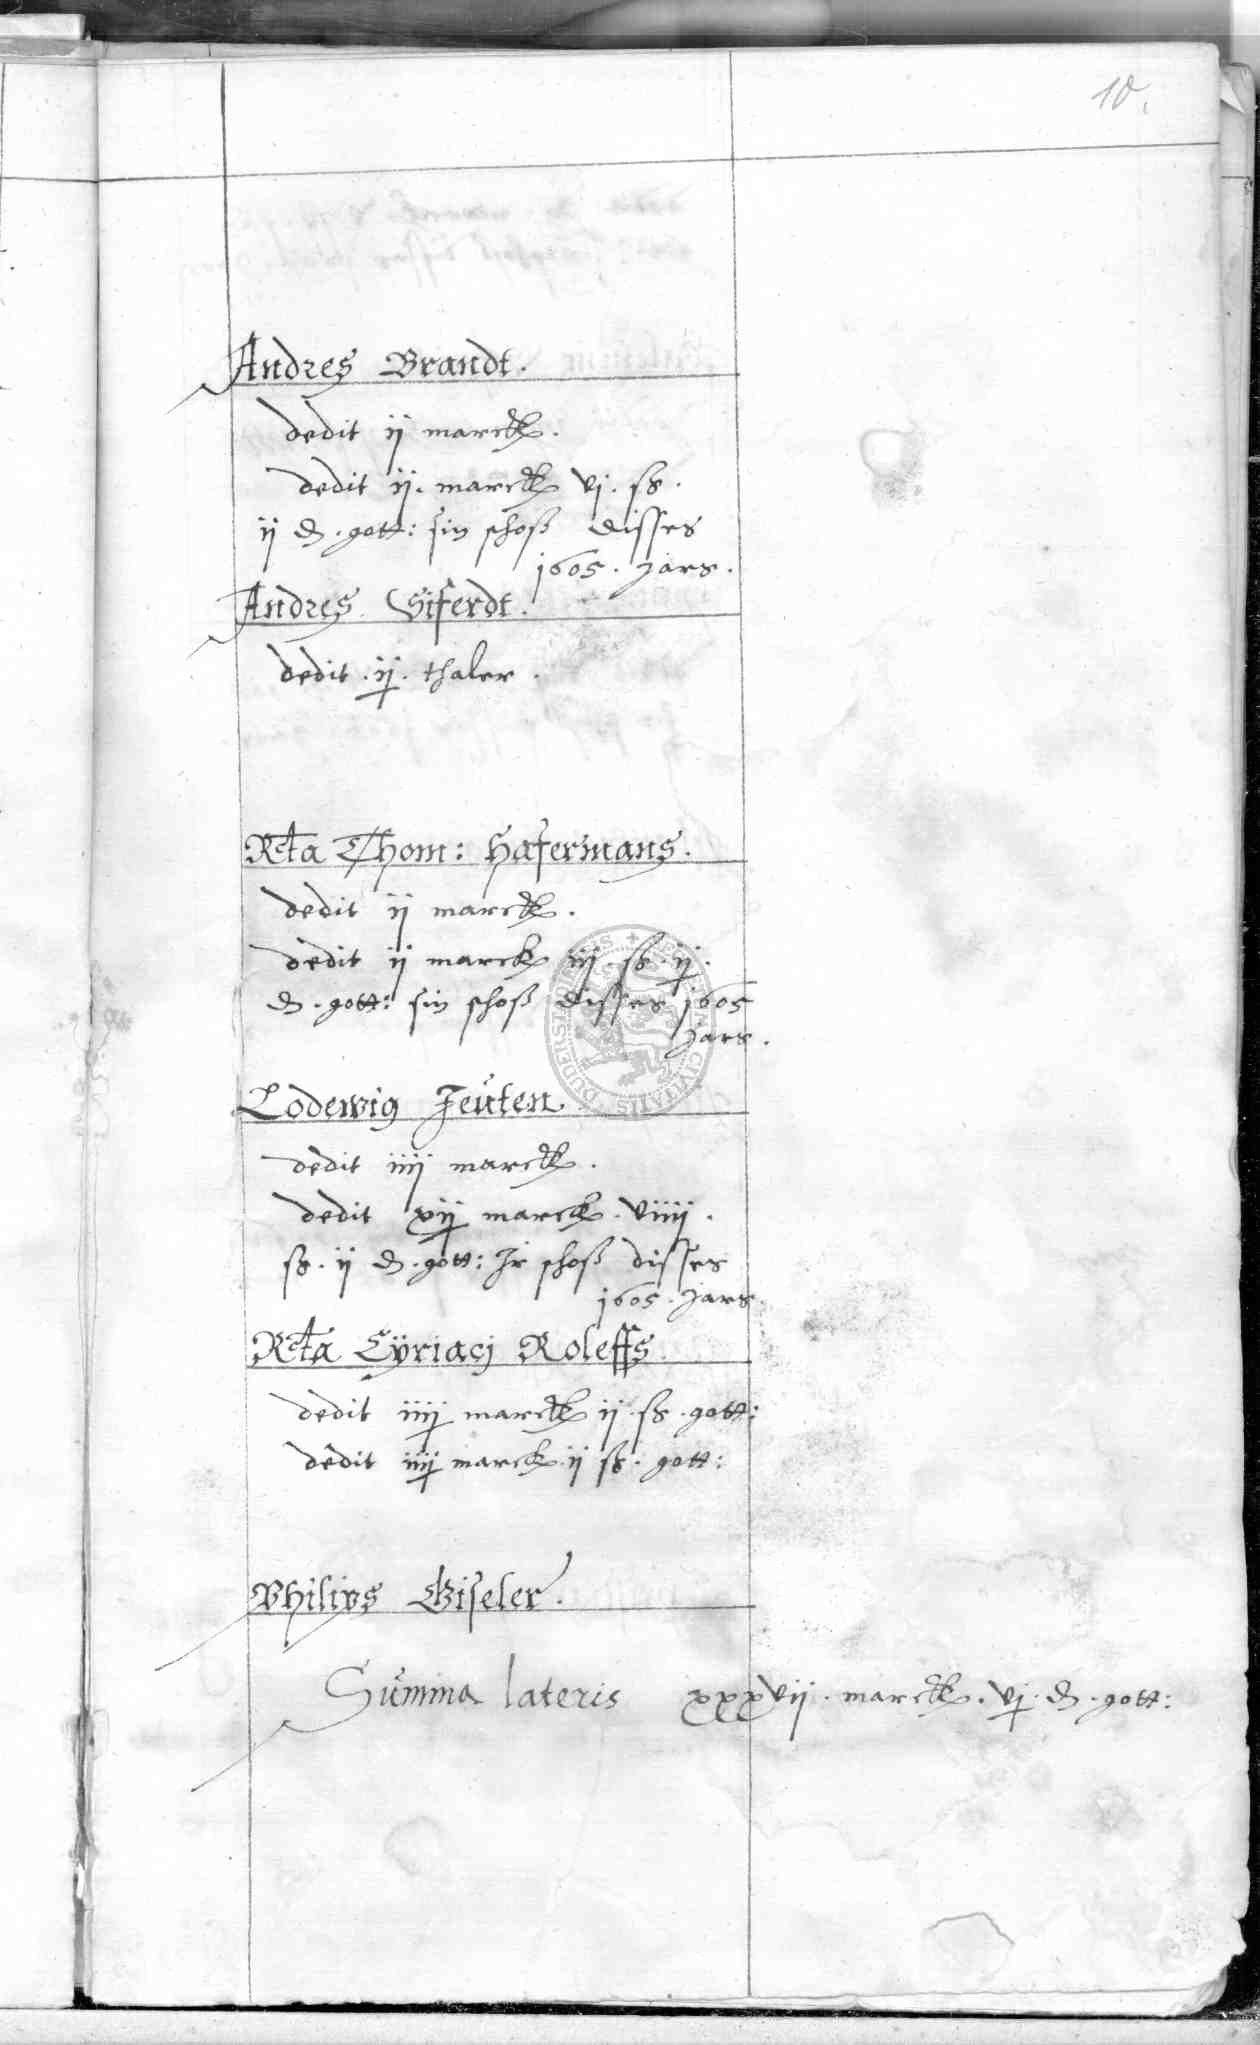 10.
Andres Brandt.
dedit ij marck.
dedit ij. marck vj. ß.
ij d. gott: sin schoß disses
1605. Jars.
Andres Siferdt.
dedit .ij. thaler.
Rcta Thom: Hafermans.
dedit ij marck.
dedit ij marck iiij ß. ij.
d. gott: sin schoß disses 1605
Jars.
Lodewig Jeüten
dedit iiij marck.
dedit xij marck. viiij.
ß. ij d. gott: Jr schoß disses
1605. Jars
Rcta Cÿriacj Roleffs
dedit iiij marck ij ß. gott:
dedit iiij marck. ij ß. gott:
Philips Giseler.
Summa lateris xxxvij. marck. vj. d. gott:
SIGILLUM CIVITATIS DUDERSTADENSIS